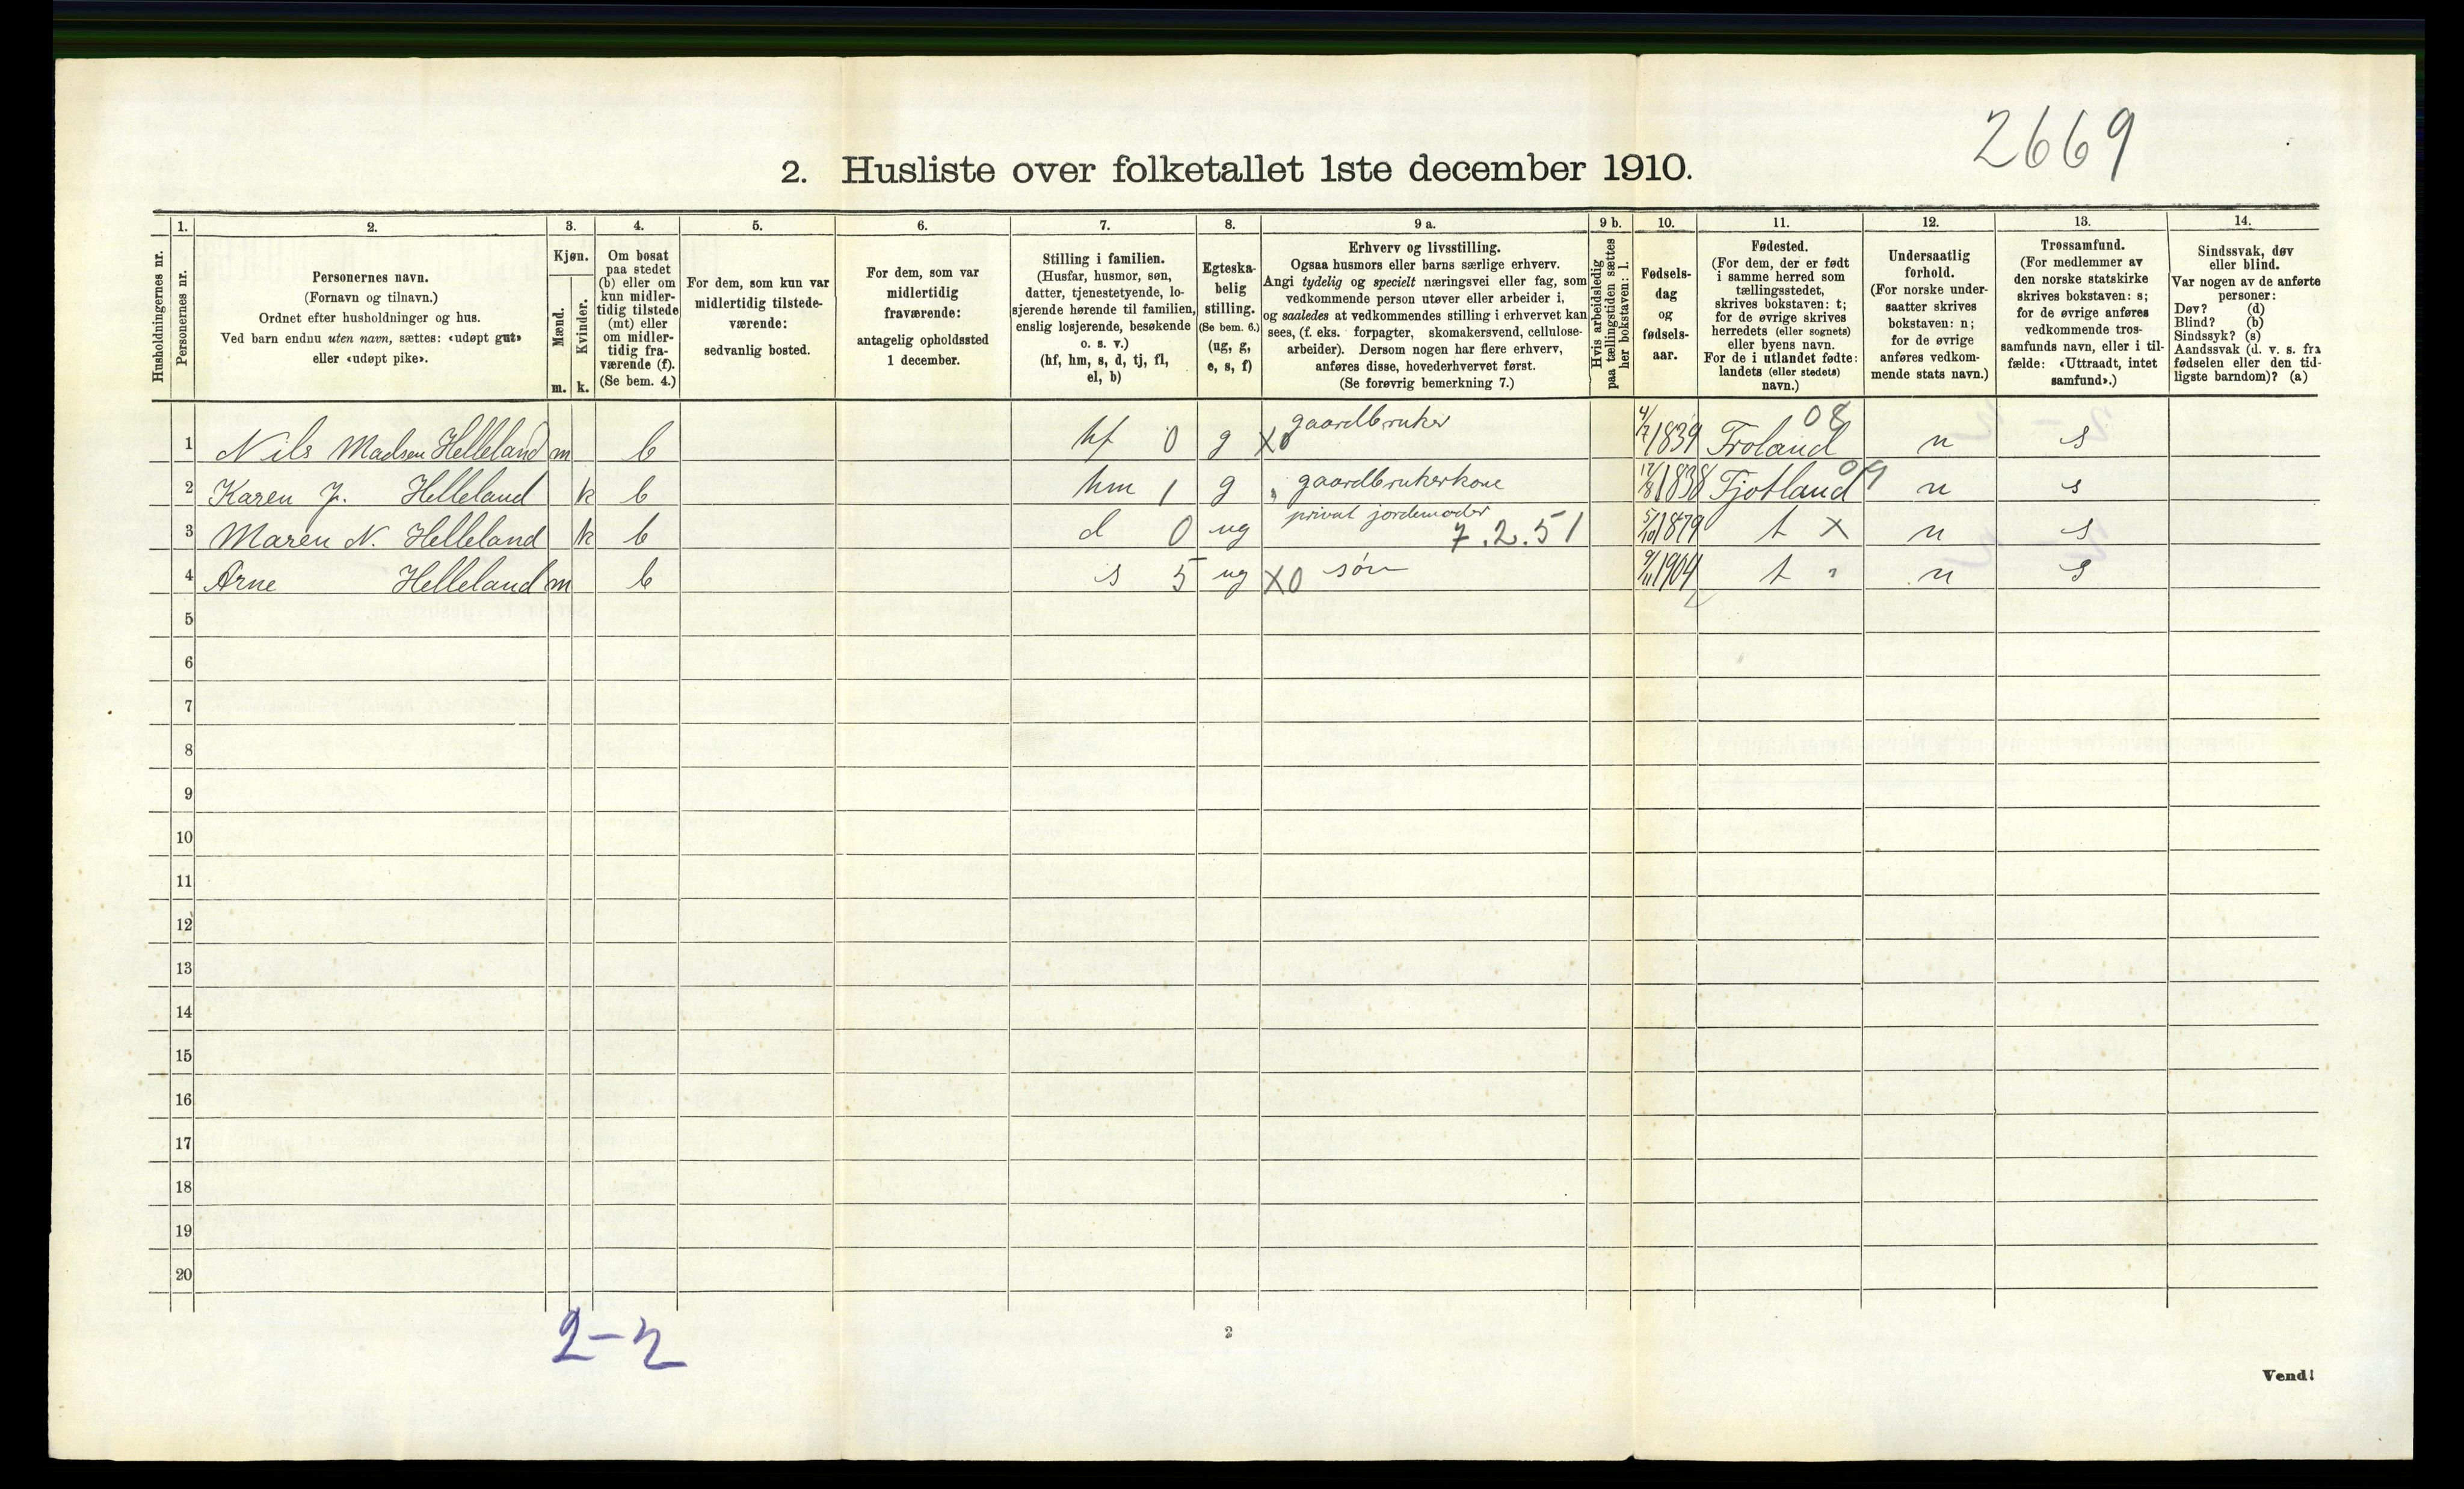 2669
2. Husliste over folketallet 1ste december 1910.
Husholdningernes nr.
1.
Personernes nr.
2.
Personernes navn.
(Fornavn og tilnavn.)
Ordnet efter husholdninger og hus.
Ved barn endnu uten navn, sættes: «udøpt gut»
eller «udøpt pike».
3.
Kjøn.
Mænd.
Kvinder.
m. k.
4.
Om bosat
paa stedet
(b) eller om
kun midler-
tidig tilstede
(mt) eller
om midler-
tidig fra-
værende (f).
(Se bem. 4.)
5.
For dem, som kun var
midlertidig tilstede-
værende:
sedvanlig bosted.
6.
For dem, som var
midlertidig
fraværende:
antagelig opholdssted
1 december.
7.
Stilling i familien.
(Husfar, husmor, søn,
datter, tjenestetyende, lo-
sjerende hørende til familien,
enslig losjerende, besøkende
o. s. v.)
(hf, hm, s, d, tj, fl,
el, b)
8.
Egteska-
belig
stilling.
(Se bem. 6.)
(ug, g,
e, s, f)
9 a.
Erhverv og livsstilling.
Ogsaa husmors eller barns særlige erhverv.
Angi tydelig og specielt næringsvei eller fag, som
vedkommende person utøver eller arbeider i,
og saaledes at vedkommendes stilling i erhvervet kan
sees, (f. eks. forpagter, skomakersvend, cellulose-
arbeider). Dersom nogen har flere erhverv,
anføres disse, hovederhvervet først.
(Se forøvrig bemerkning 7.)
9 b.
Hvis arbeidsledig
paa tællingstiden sættes
her bokstaven: l.
10.
Fødsels-
dag
og
fødsels-
aar.
11.
Fødested.
(For dem, der er født
i samme herred som
tællingsstedet,
skrives bokstaven: t;
for de øvrige skrives
herredets (eller sognets)
eller byens navn.
For de i utlandet fødte:
landets (eller stedets)
navn.)
12.
Undersaatlig
forhold.
(For norske under-
saatter skrives
bokstaven: n;
for de øvrige
anføres vedkom-
mende stats navn.)
13.
Trossamfund.
(For medlemmer av
den norske statskirke
skrives bokstaven: s;
for de øvrige anføres
vedkommende tros-
samfunds navn, eller i til-
fælde: «Uttraadt, intet
samfund».)
14.
Sindssvak, døv
eller blind.
Var nogen av de anførte
personer:
Døv? (d)
Blind? (b)
Sindssyk? (s)
Aandssvak (d. v. s. fra
fødselen eller den tid-
ligste barndom)? (a)
1 Nils Madsen Helleland m b hf 0 g X0 gaardbruker 4/7 1839 Froland 08 n s
2 Karen J. Helleland k b hm 1 g " gaardbrukerkone 17/8 1838 Fjotland 09 n s
3 Maren N. Helleland k b d 0 ug privat jordemoder 7.2.51 5/10 1879 t X n s
4 Arne Helleland m b s 5 ug X0 søn 9/11 1904 t " n s
5
6
7
8
9
10
11
12
13
14
15
16
17
18
19
20
2-2
2
Vend!